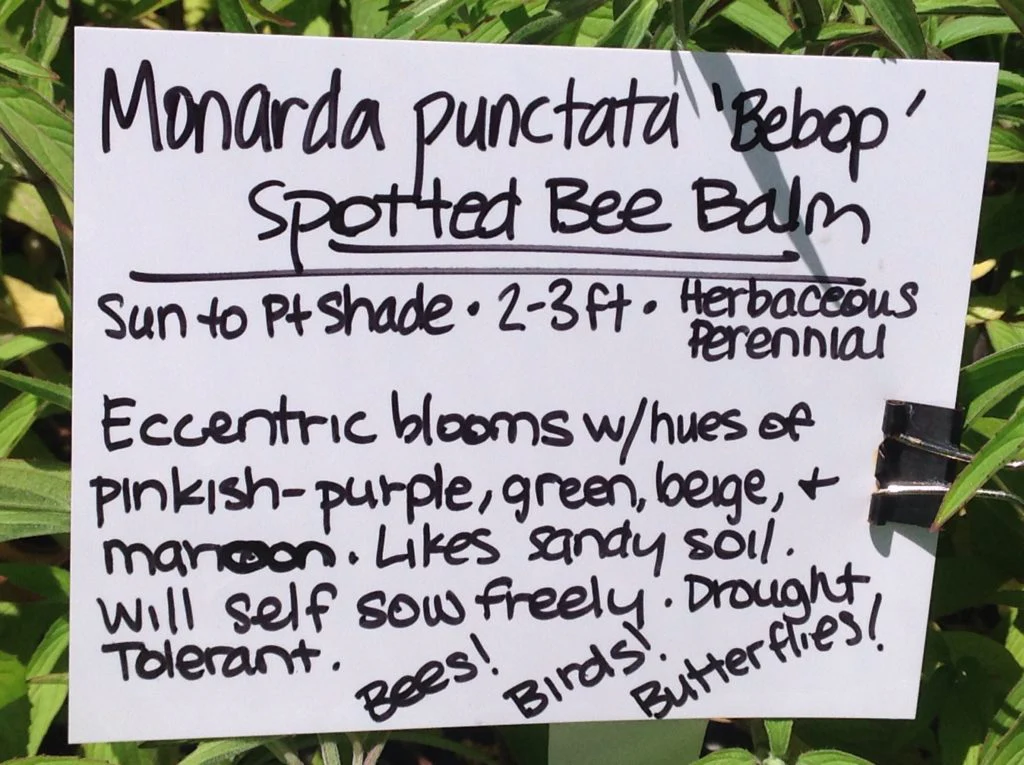 Monarda punctata 'Bebop'
Spotted Bee Balm
Sun to Pt Shade • 2-3 ft • Herbaceous
Perennial
Eccentric blooms w/hues of
pinkish-purple, green, beige, +
maroon. Likes sandy soil.
Will self sow freely. Drought
Tolerant.
Bees! Birds! Butterflies!